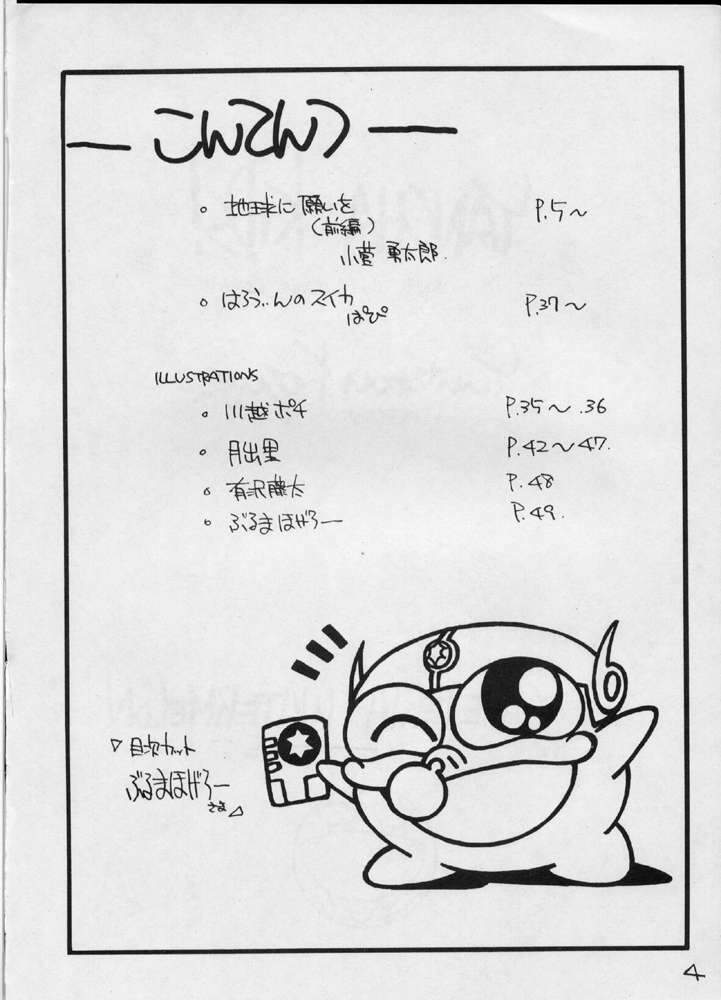 こんてんつ
。地球に願いを P.5〜
(前編)
小菅 勇太郎.
。はろうぃんのスイカ P.37〜
ぱぴ
ILLUSTRATIONS
。川越ポチ P.35〜.36
。月出里 P.42〜47.
。有沢藤太 P.48
。ぶるまほげろー P.49.
▽目次カット
ぶるまほげろー
さま△
4